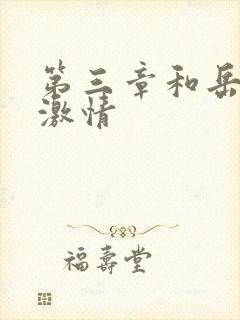 第三章和岳
激情
福壽堂